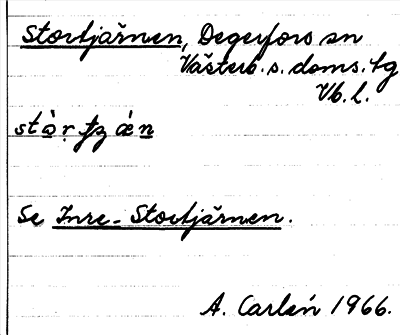 Stortjärnen, Degerfors sn
Västerb. s. doms. tg
Vb. l.
Se Inre-Stortjärnen.
A. Carlén 1966.